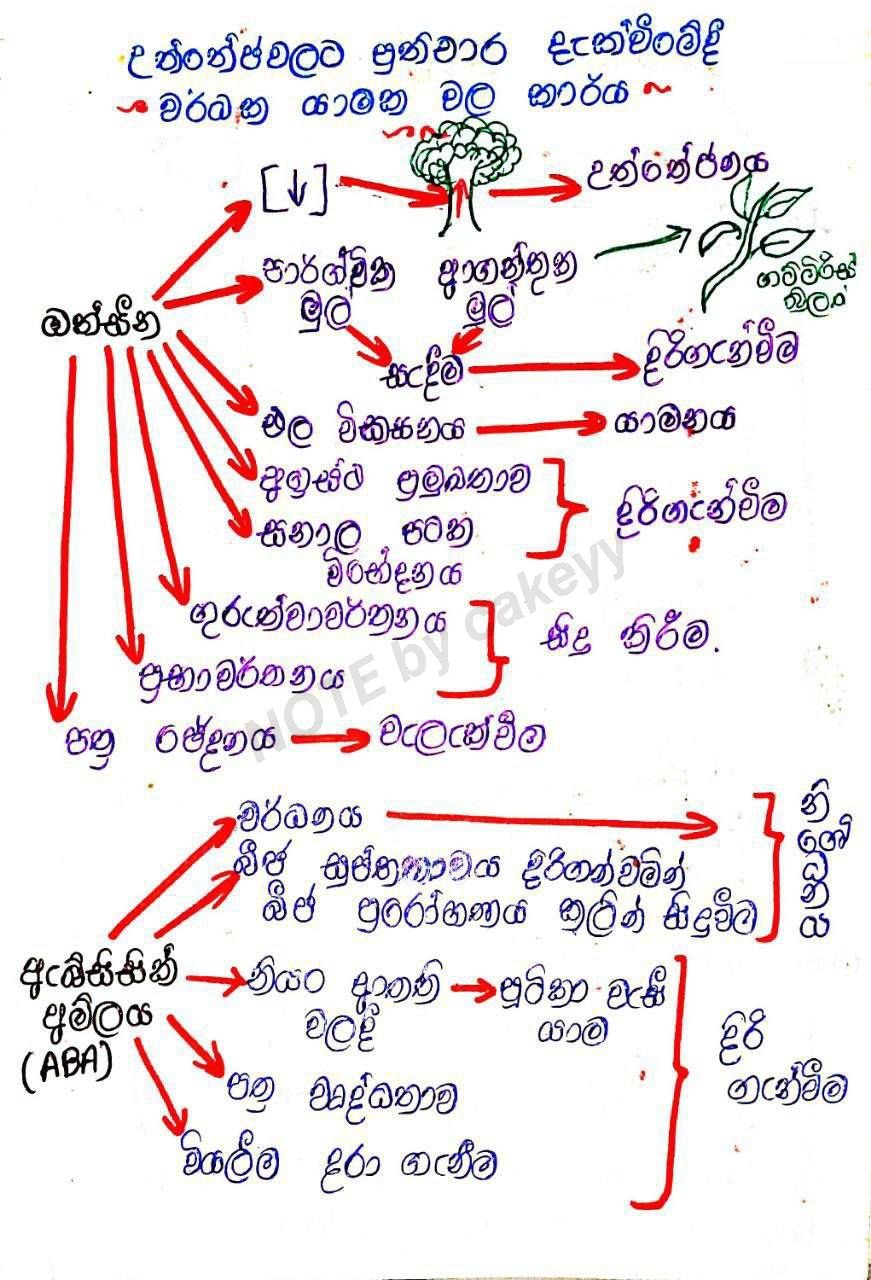 උත්තේජවලට ප්‍රතිචාර දැක්වීමේදී
~ වර්ධක යාමක වල කාර්ය ~
[↓] උත්තේජනය
පාර්ශ්වික ආගන්තුක
මුල් මුල්
ගම්මිරිස්
ඔක්සීන
සැදීම දිරිගැන්වීම
ඵල විකසනය යාමනය
අග්‍රස්ථ ප්‍රමුඛතාව
දිරිගැන්වීම
සනාල පටක
විභේදනය
ගුරුත්වාවර්තනය
සිදු කිරීම.
ප්‍රභාවර්තනය
පත්‍ර ඡේදනය වැලැක්වීම
NOTE by cakeyy
වර්ධනය
බීජ සුප්තතාවය දිරිගන්වමින්
බීජ ප්‍රරෝහණය කලින් සිදුවීම
නිශේධනය
ඇබ්සිසික්
අම්ලය
(ABA)
නියං ආතති පූටිකා වැසී
වලදී යාම
දිරි
ගැන්වීම
පත්‍ර වෘද්ධතාව
වියලීම දරා ගැනීම